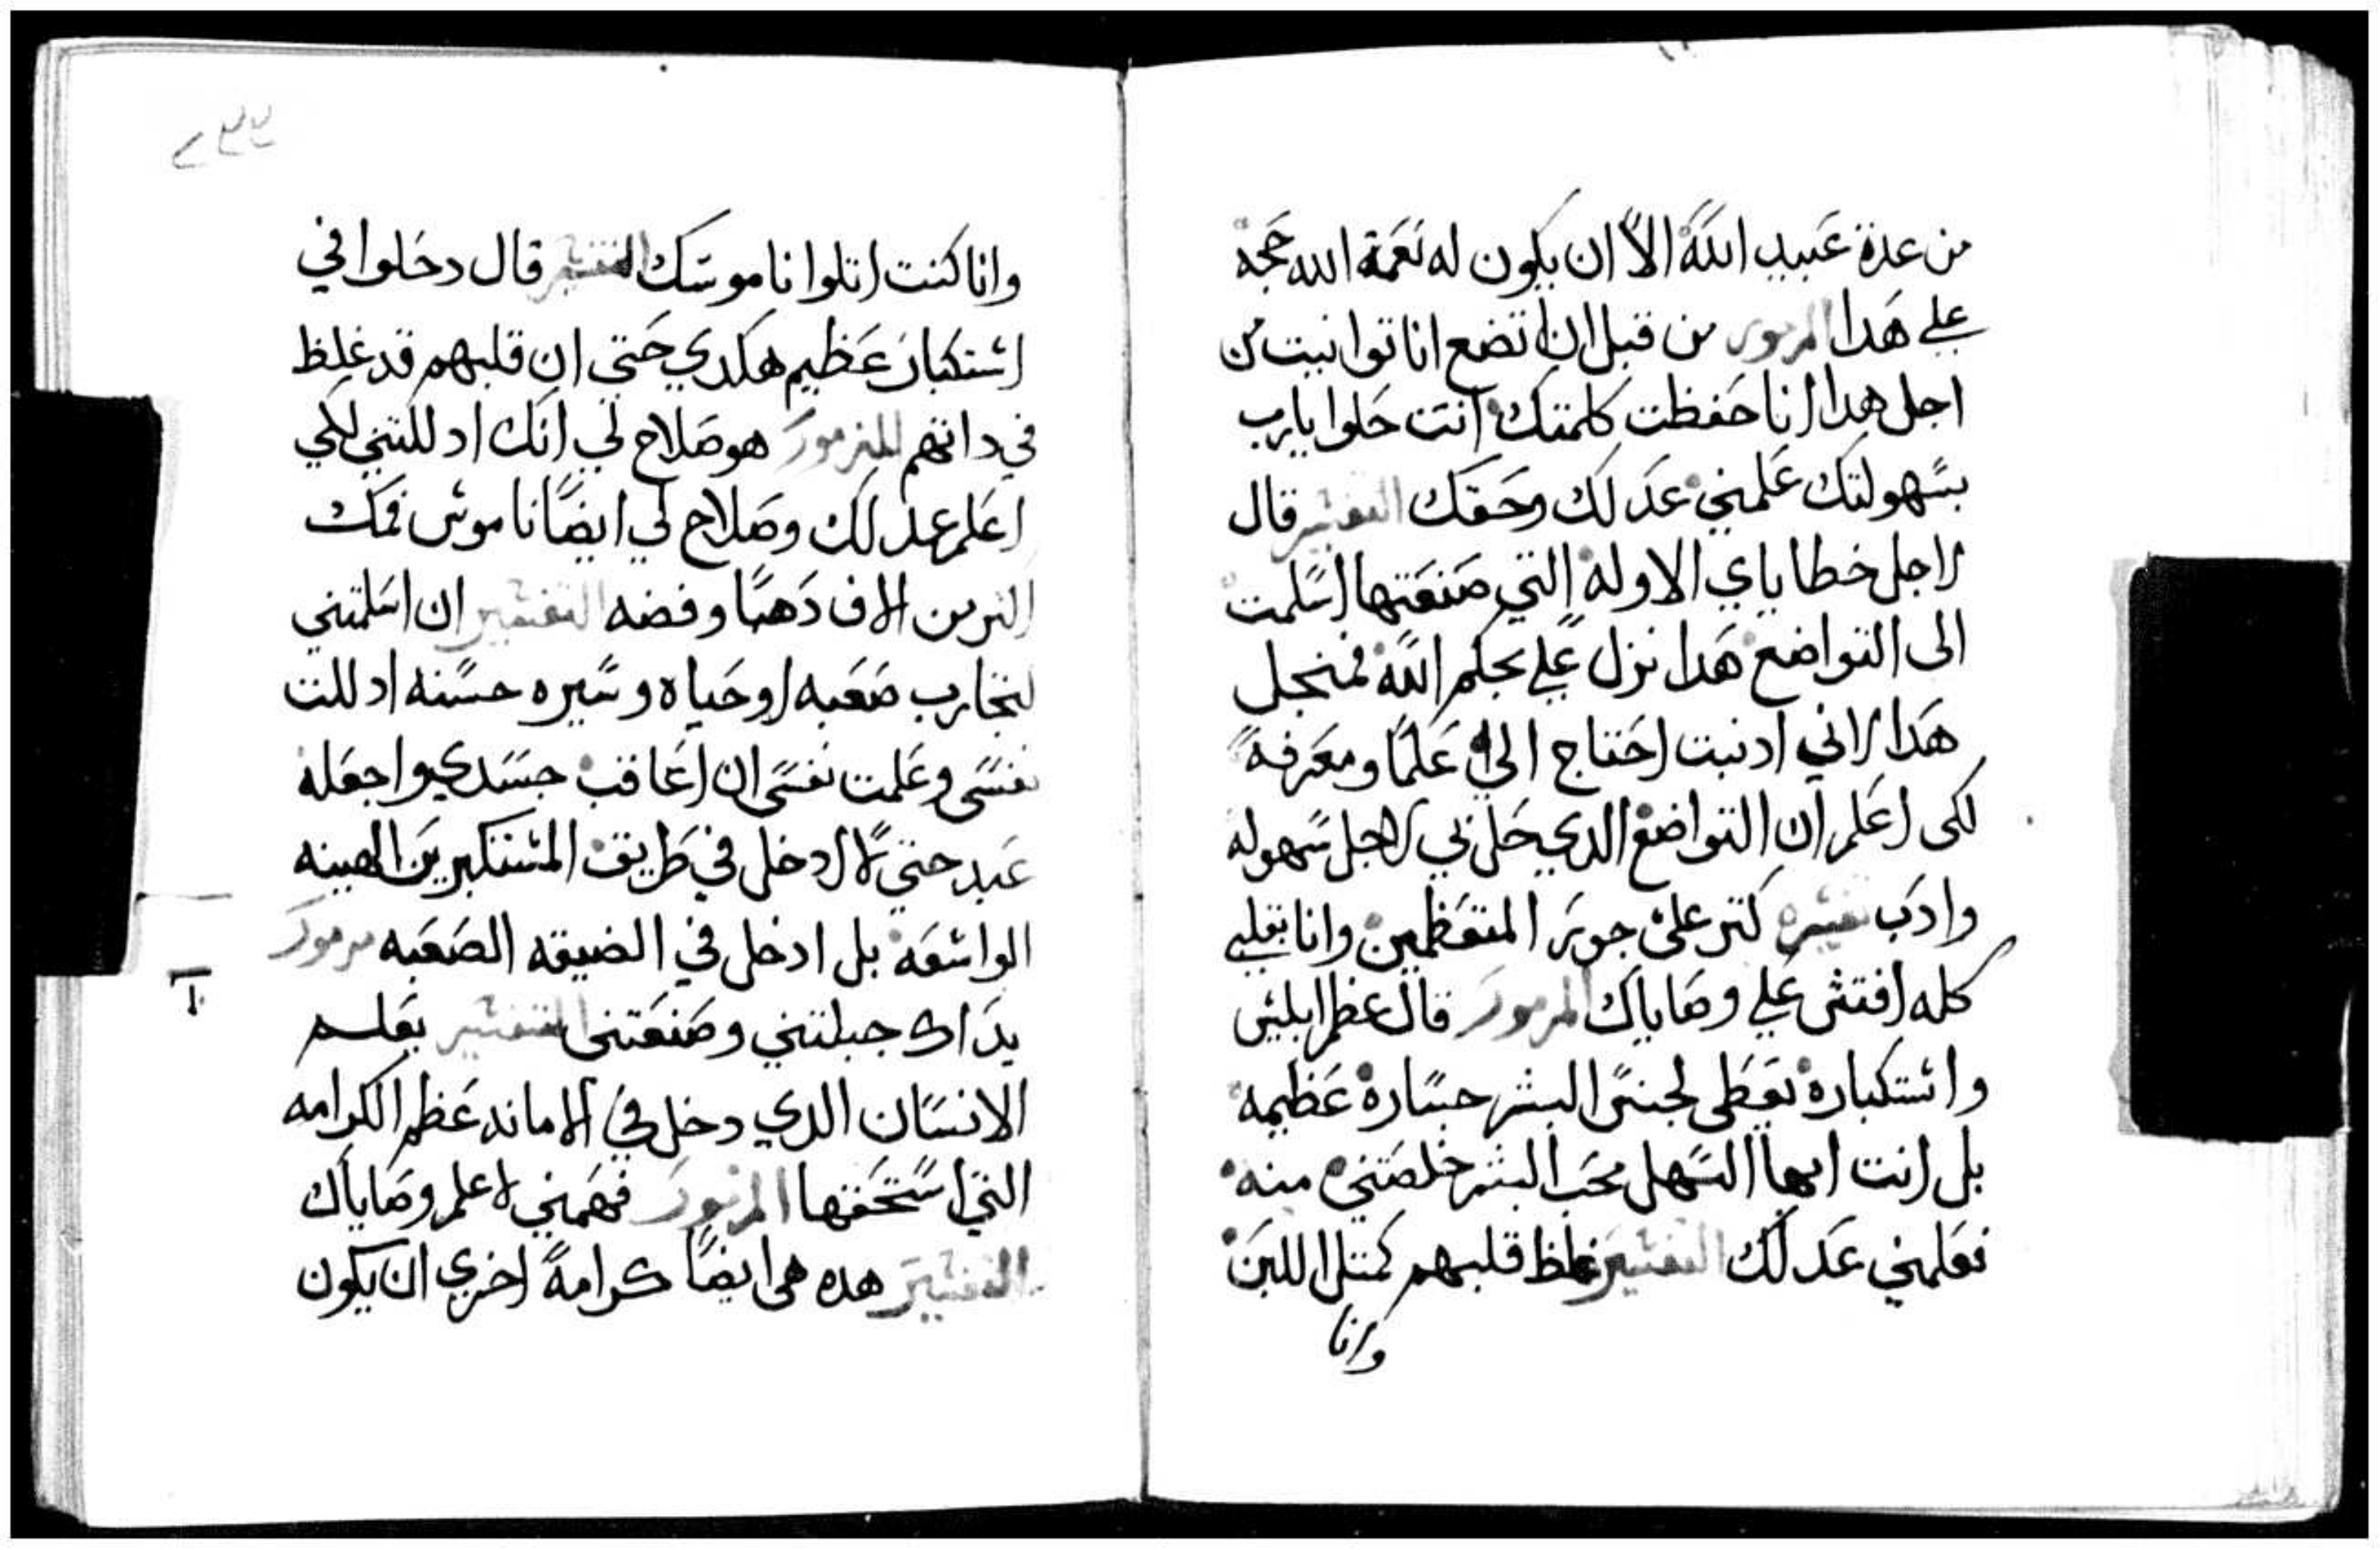 من عدة عبيد الله الا ان يكون له نعمة الله حجه
علي هدا المزمور من قبل ان اتضع انا توانيت من
اجل هدا انا حفظت كلمتك انت حلوا يارب
بسهولتك علمني عدلك وحقك التفسير قال
لاجل خطاياي الاوله التي صنعتها اسلمت
الى التواضع هدا نزل علي بحكم الله فمنجل
هدا لاني ادنبت احتاج الي علما ومعرفة
لكى اعلم ان التواضع الدي حل بي لاجل سهوله
وادب تفسيره كتر على جور المتعظمين وانا بقلبي
كله افتش علي وصاياك المزمور قال عظم ابليس
واستكباره يعطى لجنس البشر خساره عظيمه
بل انت ايها السهل محب البشر خلصتني منه
فعلمني عدلك التفسير غلظ قلبهم كمتل اللبن
وانا
وانا كنت اتلوا ناموسك التفسير قال دخلوا في
استكبار عظيم هكدي حتي ان قلبهم قد غلظ
في داتهم المزمور هو صلاح لي انك ادللتني لكي
اعلم عدلك وصلاح لي ايضا ناموس فمك
اكتر من الاف دهبا وفضه التفسير ان اسلمتني
لتجارب صعبه او حياه وسيره حسنه ادللت
نفسى وعلمت نفسى ان اعاقب جسدي واجعله
عبد حتي لا ادخل في طريق المستكبرين الهينه
الواسعه بل ادخل في الضيقه الصعبه مزمور
يداك جبلتني وصنعتنى التفسير يعلم
الانسان الدي دخل في الامانه عظم الكرامه
التي استحقها المزمور فهمني لاعلم وصاياك
التفسير هده هى ايضا كرامة اخري ان يكون